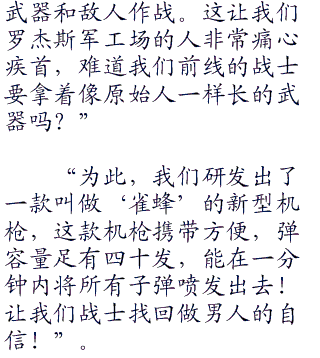 武器和敌人作战。这让我们
罗杰斯军工场的人非常痛心
疾首，难道我们前线的战士
要拿着像原始人一样长的武
器吗？”
“为此，我们研发出了
一款叫做‘雀蜂’的新型机
枪，这款机枪携带方便，弹
容量足有四十发，能在一分
钟内将所有子弹喷发出去！
让我们战士找回做男人的自
信！”。